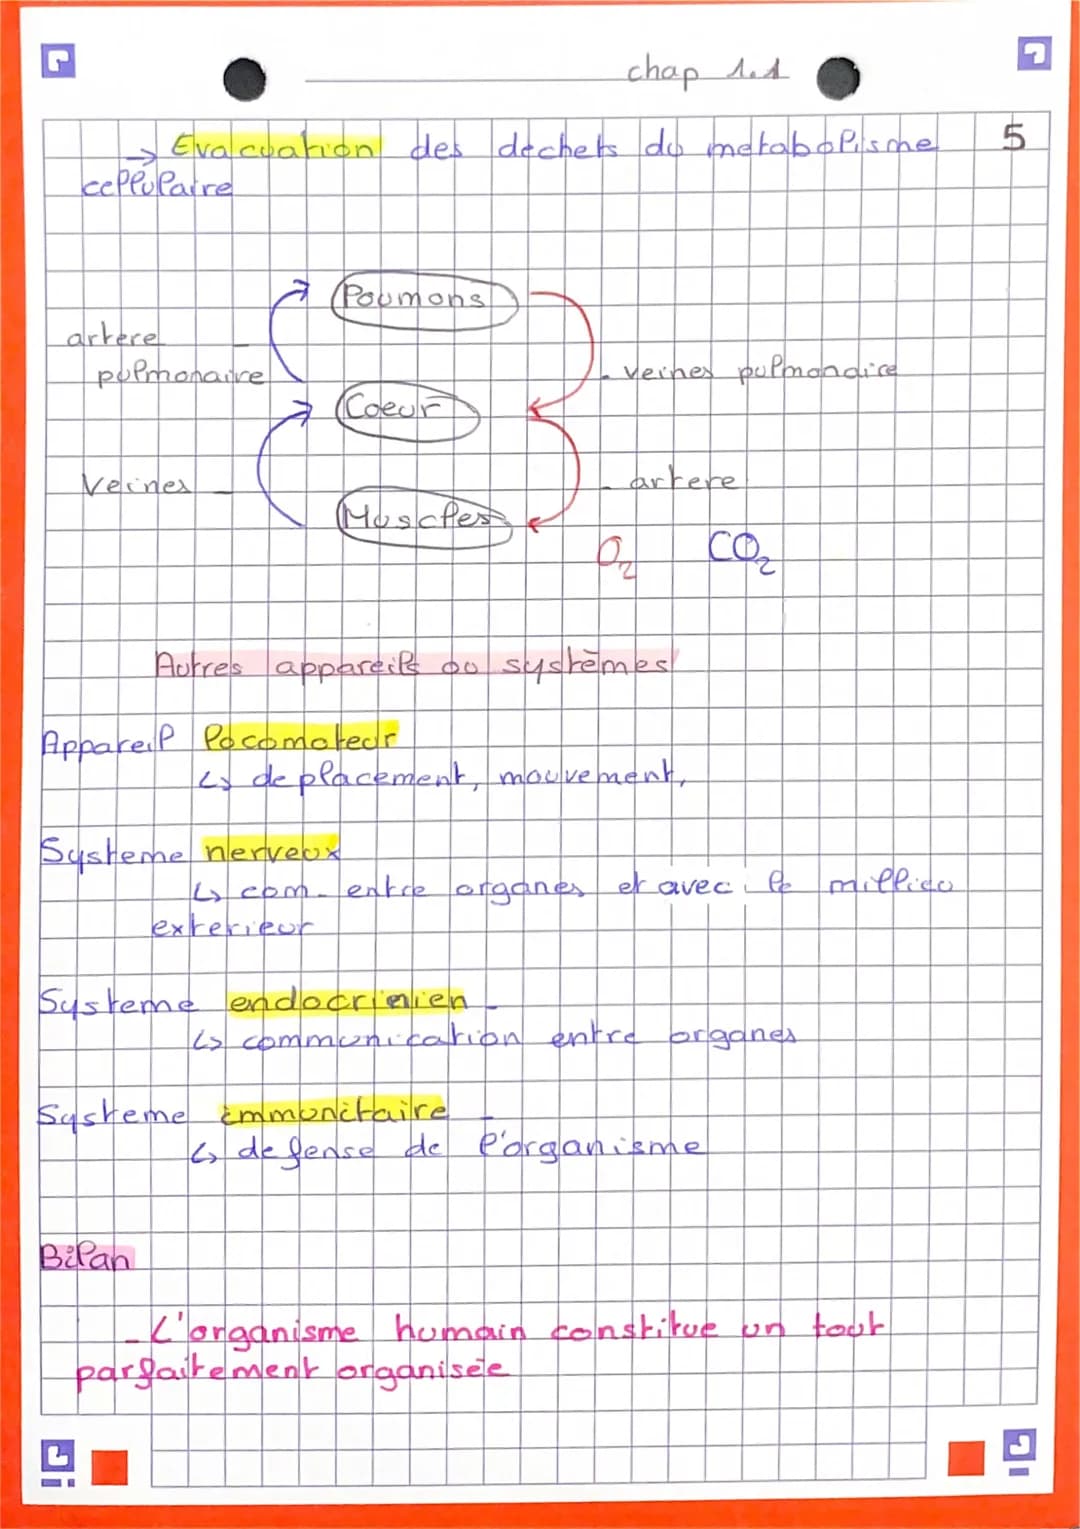 chap 1.1
5
→ Evacuation des dechets du metabolisme
cellulaire
Poumons
artere
pulmonaire
veines pulmonaire
Coeur
Veines
artere
Muscles
O2 CO2
Autres appareils ou systèmes
Appareil locomoteur
↳ deplacement, mouvement,
Systeme nerveux
↳ com. entre organes et avec le millieu
exterieur
Systeme endocrinien
↳ communication entre organes
Systeme immunitaire
↳ defense de l'organisme
Bilan
- L'organisme humain constitue un tout
parfaitement organisée